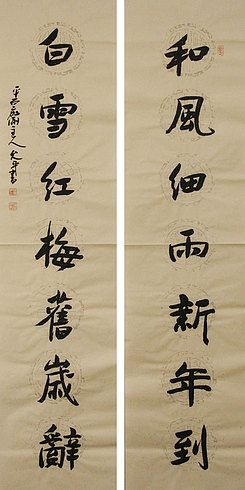 和風細雨新年到
白雪紅梅舊歲辭